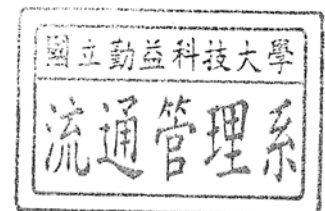 國立勤益科技大學
流通管理系